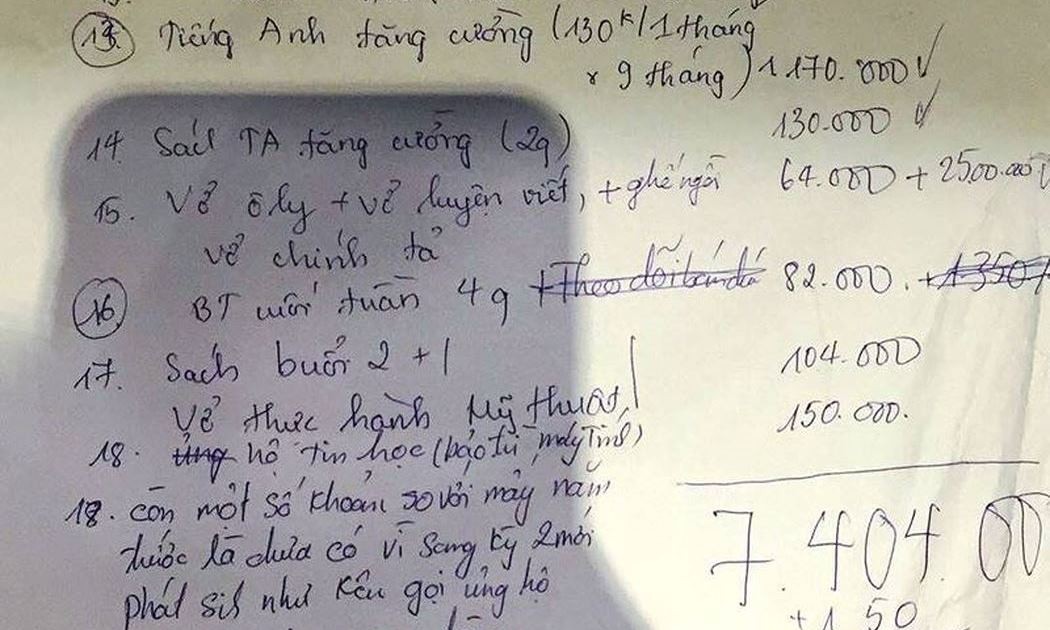 13. Tiếng Anh tăng cường (130k/1tháng
x 9 tháng) 1.170.000
14. Sách TA tăng cường (2q) 130.000
15. Vở ôly + vở luyện viết, + ghế ngồi 64.000 + 2500.000
vở chính tả
16 BT cuối tuần 4q + Theo dõi 82.000. + 1350
17. Sách buổi 2 + 104.000
Vở thực hành Mỹ thuật,
18. ủng hộ tin học (bảo trì máy Tính) 150.000.
18. còn một số khoản so với mấy năm
trước là chưa có vì sang kỳ 2 mới
phát sinh như kêu gọi ủng hộ
7.404.00
+ 1 50